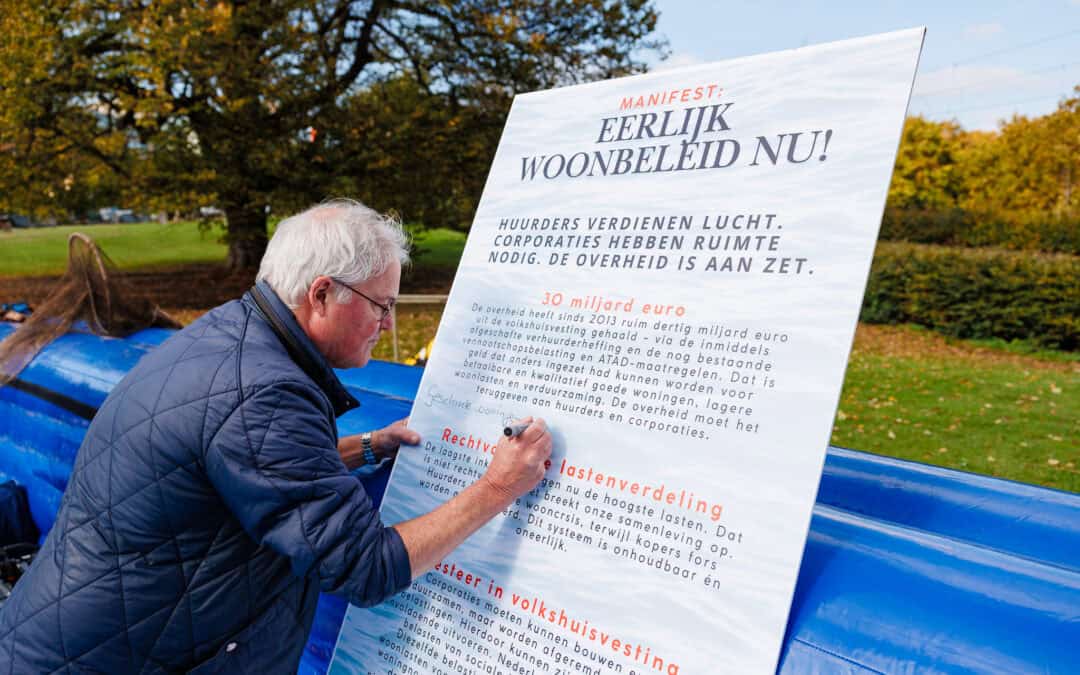 MANIFEST:
EERLIJK
WOONBELEID NU!
HUURDERS VERDIENEN LUCHT.
CORPORATIES HEBBEN RUIMTE
NODIG. DE OVERHEID IS AAN ZET.
30 miljard euro
De overheid heeft sinds 2013 ruim dertig miljard euro
uit de volkshuisvesting gehaald – via de inmiddels
afgeschafte verhuurderheffing en de nog bestaande
vennootschapsbelasting en ATAD-maatregelen. Dat is
geld dat anders ingezet had kunnen worden voor
betaalbare en kwalitatief goede woningen, lagere
woonlasten en verduurzaming. De overheid moet het
teruggeven aan huurders en corporaties.
Rechtv e lastenverdeling
De laagste ink gen nu de hoogste lasten. Dat
is niet rechtv et breekt onze samenleving op.
Huurders e wooncrsis, terwijl kopers fors
worden erd. Dit systeem is onhoudbaar én
oneerlijk.
esteer in volkshuisvesting
Corporaties moeten kunnen bouwen e
duurzamen, maar worden afgeremd
belastingen. Hierdoor kunnen zij
nvoldoende uitvoeren. Nederl
belasten van sociale
Diezelfde belasti
woonlasten vo
woningno